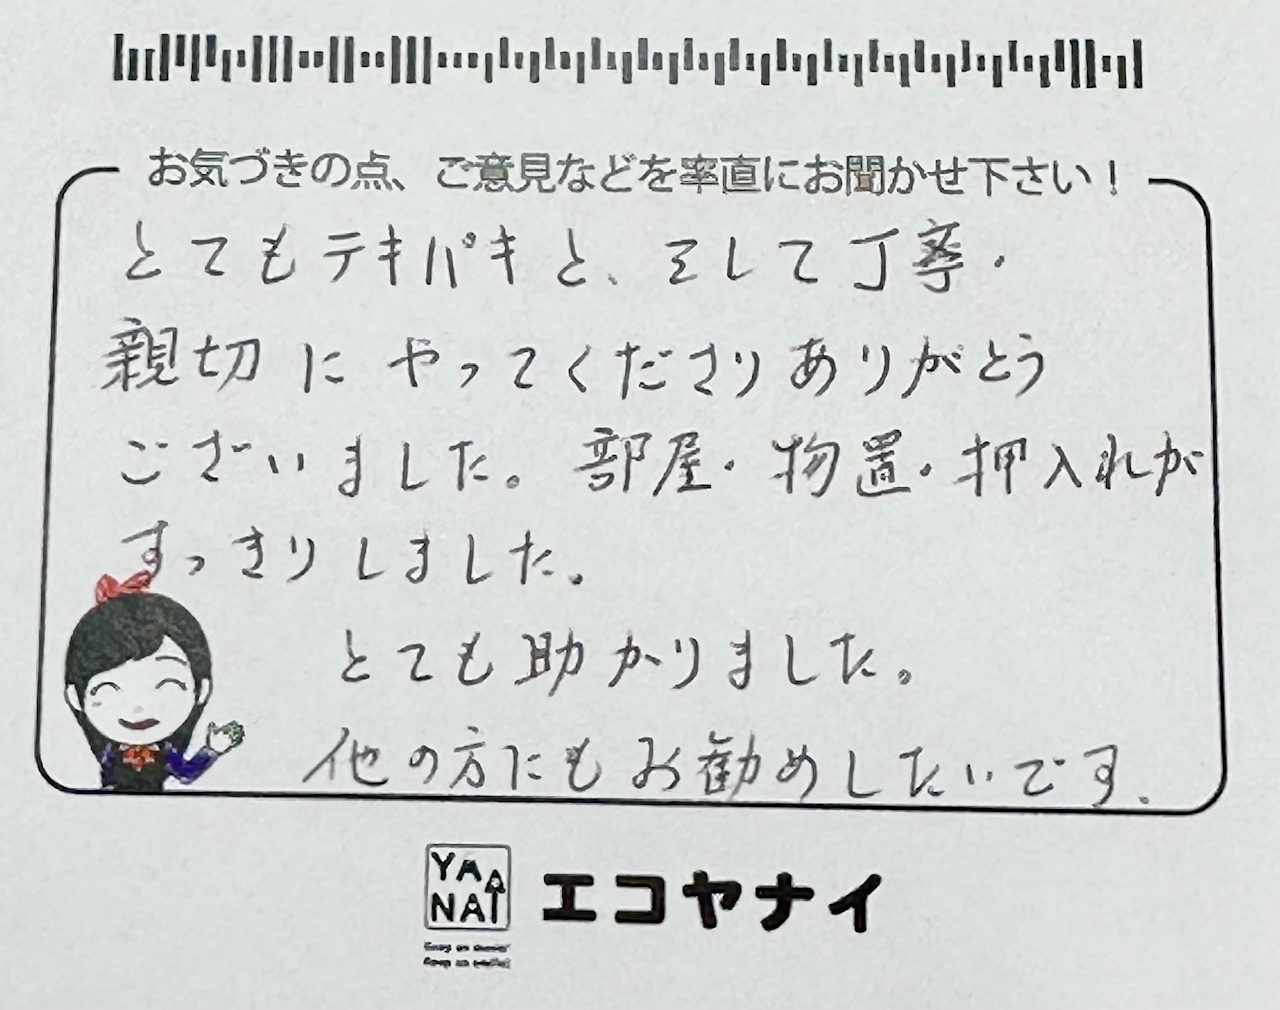 お気づきの点、ご意見などを率直にお聞かせ下さい！
とてもテキパキと、そして丁寧・
親切にやってくださりありがとう
ございました。部屋・物置・押入れが
すっきりしました。
とても助かりました。
他の方にもお勧めしたいです.
YA
NAI
エコヤナイ